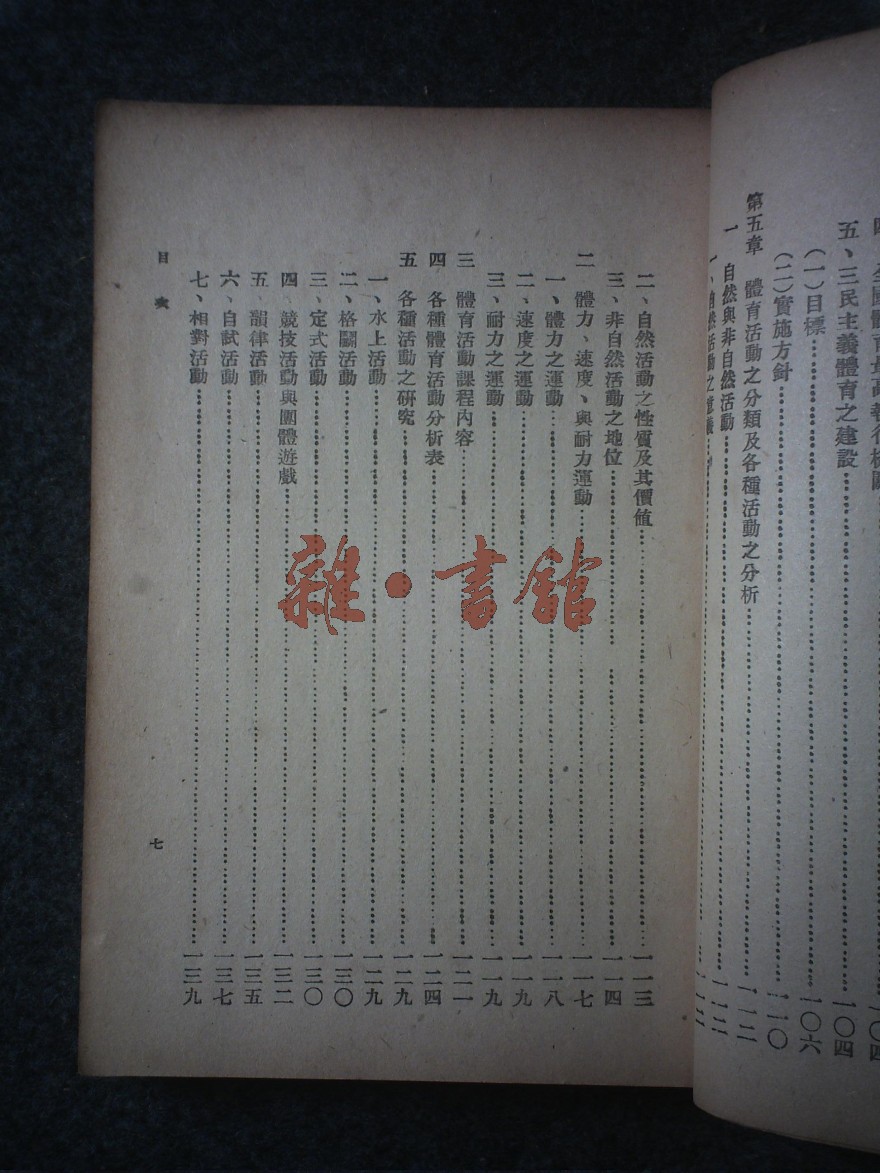 五、三民主義體育之建設……一〇四
(一)目標……一〇六
(二)實施方針……一一〇
第五章 體育活動之分類及各種活動之分析……一一二
一 自然與非自然活動……一一二
一、自然活動之意義……一一二
二、自然活動之性質及其價值……一一三
三、非自然活動之地位……一一四
二 體力、速度、與耐力運動……一一七
一、體力之運動……一一八
二、速度之運動……一一九
三、耐力之運動……一一九
三 體育活動課程內容……一二一
四 各種體育活動分析表……一二四
五 各種活動之研究……一二九
一、水上活動……一二九
二、格鬪活動……一三〇
三、定式活動……一三〇
四、競技活動與團體遊戲……一三二
五、韻律活動……一三五
六、自試活動……一三七
七、相對活動……一三九
目次
七
雜·書館